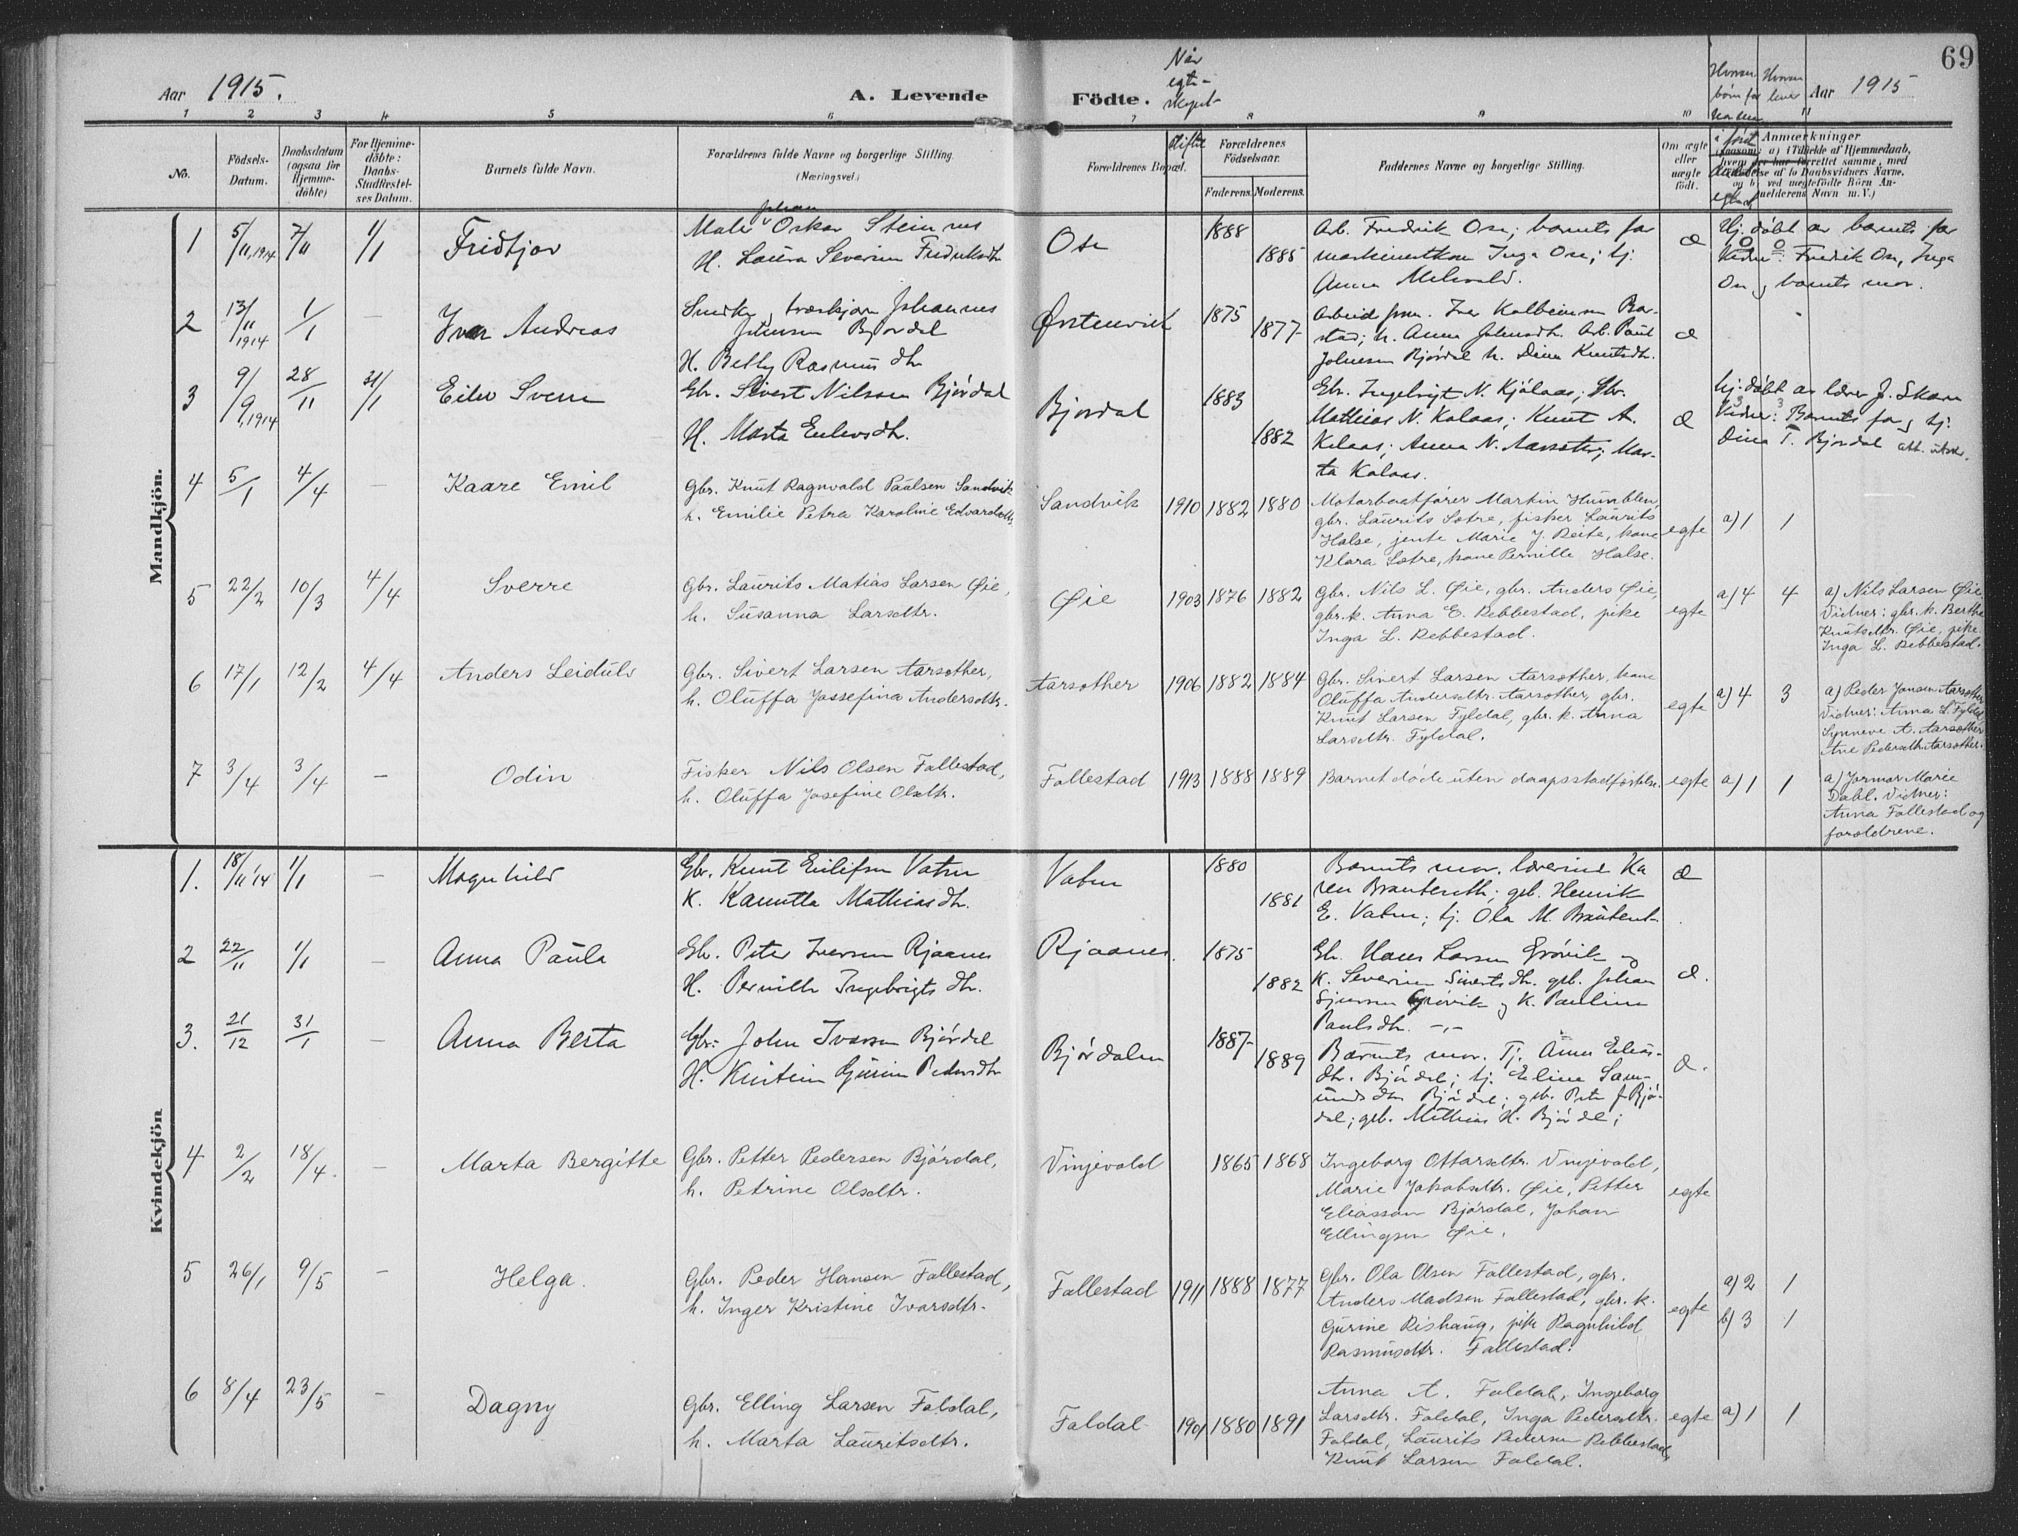 Aar 1915.
A. Levende
Födte.
Når
egte-
skapet
stiftet
Aar 1915
69
1 2 3 4 5 6 7 8 9 10 11
No.
Födsels-
Datum.
Daabsdatum
(ogsaa for
Hjemme-
döbte)
For Hjemme-
döbte:
Daabs-
Stadfæstel-
ses Datum.
Barnets fulde Navn.
Forældrenes fulde Navne og borgerlige Stilling.
(Næringsvei.)
Forældrenes Bopæl.
Forældrenes
Födselsaar.
Faderens.
Moderens.
Faddernes Navne og borgerlige Stilling.
Om ægte
eller
uægte
födt.
Anmærkninger
Mandkjön.
1 5/11,1914 7/11 1/1 Fridtjov
Maler Johan Oskar Steinnes
H. Laura Severine Fredriksdtr
Ose 1888 1885
Arb. Fredrik Ose; barnets far
Inga Ose; tj.
Anna
æ
Hj.døbt av barnets far
Vidner: Fredrik Ose, Inga
Ose og barnets mor.
2 13/11 1914 1/1 – Iver Andreas
Johannes
Johnsen Bjørdal
H. Betty Rasmusdtr
Østenvik 1875 1877
Iver Kolbeinsen Bar-
stad; h. Anna Johnsdtr. Arb. Paul
Johnsen Bjørdal h. Dina Knutsdtr.
æ
3 9/9,1914 28/11 31/1 Eilev Svein
Gbr. Sivert Nilsson Bjørdal
H. Marta Eilevsdtr.
Bjørdal 1883 1882
Gbr. Ingebrigt N. Kjølaas; Gbr.
Mathias N. Kolaas; Knut A.
Kolaas; Anna N. Aarsother; Mar-
ta Kolaas.
æ
Hj.døbt av lærer J. Skaar
Vidner: Barnets far og tj.
Dina T. Bjørdal
4 5/1 4/4 – Kaare Emil
Gbr. Knut Ragnvald Paulsen Sandvik
h. Emilie Petra Karoline Edvardsdtr.
Sandvik 1910 1882 1880
Motorbaatfører Martin Humblen,
gbr. Laurits Sætre, fisker Laurits
Halse, jente Marie J. Reite, kone
Klara Sætre, kone Pernille Halse.
egte a) 1 1
5 22/2 10/3 4/4 Sverre
Gbr. Laurits Matias Larsen Øie,
h. Susanna Larsdtr.
Øie 1903 1876 1882
Gbr. Nils L. Øie, gbr. Anders Øie,
gbr.k. Anna E. Rebbestad, pike
Inga L. Rebbestad.
egte a) 4 4
a) Nils Larsen Øie.
Vidner: gbr. k. Berthe
Knutsdtr. Øie, pike
Inga L. Rebbestad.
6 17/1 12/2 4/4 Anders Leidulv
Gbr. Sivert Larsen Aarsother,
h. Oluffa Jossefina Andersdtr.
Aarsother 1906 1882 1884
Gbr. Sivert Larsen Aarsother, kone
Oluffa Andersdtr. Aarsother, gbr.
Knut Larsen Fyldal, gbr. k. Anna
Larsdtr. Fyldal.
egte a) 4 3
a) Peder Jonsen Aarsother
Vidner: Anna L. Fyldal,
Synneve A. Aarsother
Ane Pedersdtr. Aarsother.
7 3/4 3/4 – Odin
Fisker Nils Olsen Follestad,
h. Oluffa Josefine Olsdtr.
Follestad 1913 1888 1889
Barnet døde uten daapsstadfestelse.
egte a) 1 1
a) Jormor Marie
Dahl. Vidner:
Anna Follestad og
forældrene.
Kvindekjön
1. 18/11 14 1/1 – Magnhild
Gbr. Knut Eilifsen Vatne
K. Kamilla Mathiasdtr.
Vatne 1880 1881
Barnets mor, lærerinde Ka-
ren Brauteseth; gbr. Henrik
E. Vatne; tj. Ola M. Brauteset.
æ
2 22/11 1/1 Anna Paula
Gbr. Peter Iversen Rjaanes
H. Pernille Ingebrigtsdtr.
Rjaanes. 1875 1882
Gbr. Hans Larsen Grøvik og
K. Severine Sivertsdtr. gbr. Johan
Sjursen Grøvik og K. Pauline
Paulsdtr. –„–
æ.
3. 21/12 31/1 Anna Berta
Gbr. John Ivarsen Bjørdal
H. Kristine Gurine Pedersdtr
Bjørdalen 1887 1889
Barnets mor. Tj. Anna Elias-
dtr. Bjørdal; tj. Eline Sam-
undsdtr Bjørdal; gbr. Peter J Bjør-
dal; gbr. Mathias H. Bjørdal;
æ.
4 2/2 18/4. – Marta Bergitte
Gbr. Petter Pedersen Bjørdal,
h. Petrine Olsdtr.
Vinjevold 1865 1868
Ingeborg Ottarsdtr. Vinjevold,
Marie Jakobsdtr. Øie, Petter
Eliassen Bjørdal, Johan
Ellingsen Øie.
egte
5 26/1 9/5 – Helga.
Gbr. Peder Hansen Follestad,
h. Inger Kristine Ivarsdtr.
Follestad 1911 1888 1877
Gbr. Ola Olsen Follestad, gbr.
Anders Madsen Follestad, gbr. k.
Gurine Rishaug, pike Ragnhild
Rasmusdtr. Follestad.
egte a) 2 1
b) 3 1
6 8/4 23/5 – Dagny
Gbr. Elling Larsen Foldal,
h. Marta Lauritsdtr.
Foldal 1901 1880 1891
Anna A. Foldal, Ingeborg
Larsdtr. Foldal, Inga Pedersdtr.
Foldal, Laurits Pedersen Rebbestad,
Knut Larsen Foldal.
egte a) 1 1